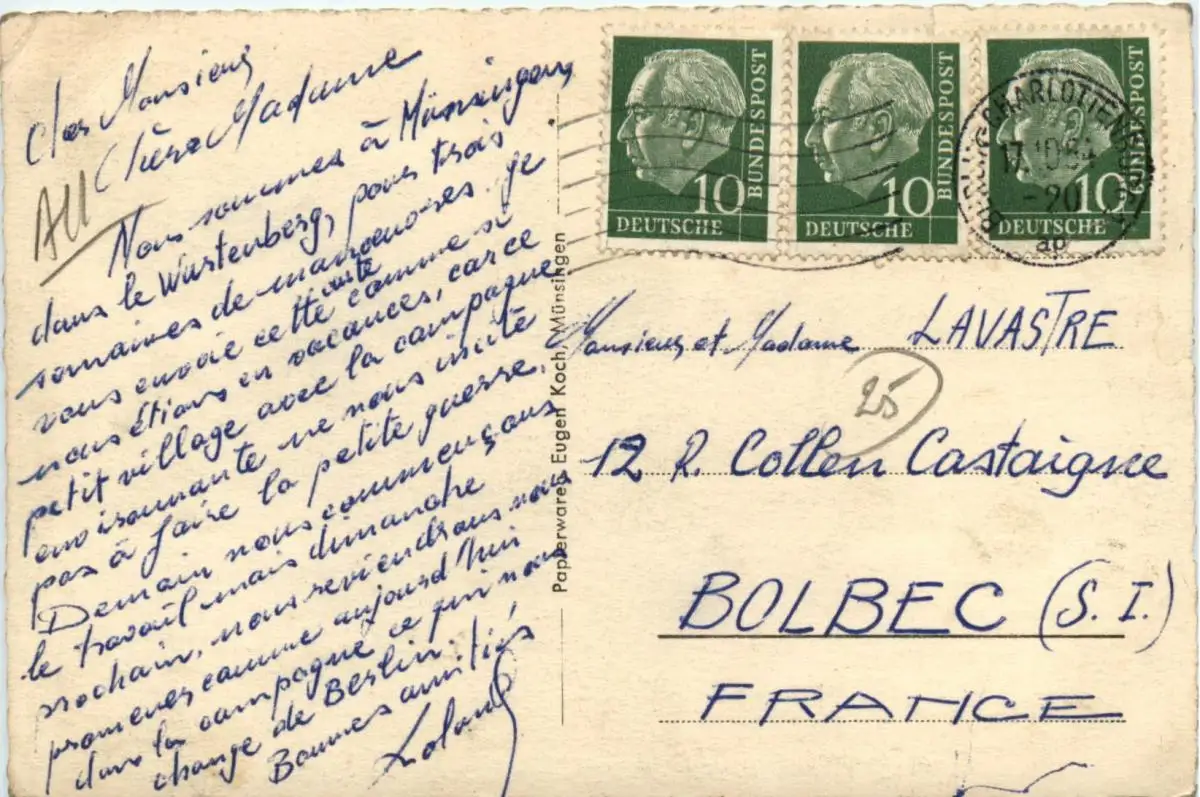 Cher Monsieur
Chère Madame
All
Nous sommes à Münsingen,
dans le Wurstenberg, pour trois
semaines de manoeuvres. Je
vous envoie cette carte comme si
nous étions en vacances, car ce
petit village avec la campagne
environnante ne nous incite
pas à faire la petite guerre.
Demain nous commençons
le travail mais dimanche
prochain, nous reviendrons nous
promener comme aujourd'hui
dans la campagne ce qui nous
change de Berlin.
Bonnes amitiés
Roland
Papierwaren Eugen Koch, Münsingen
10
DEUTSCHE
BUNDESPOST
10
DEUTSCHE
BUNDESPOST
10
DEUTSCHE
BUNDESPOST
BERLIN-CHARLOTTENBURG
17.10.54
-20
ap
Monsieur et Madame LAVASTRE
25
12 R. Collen Castaigne
BOLBEC (S.I.)
FRANCE